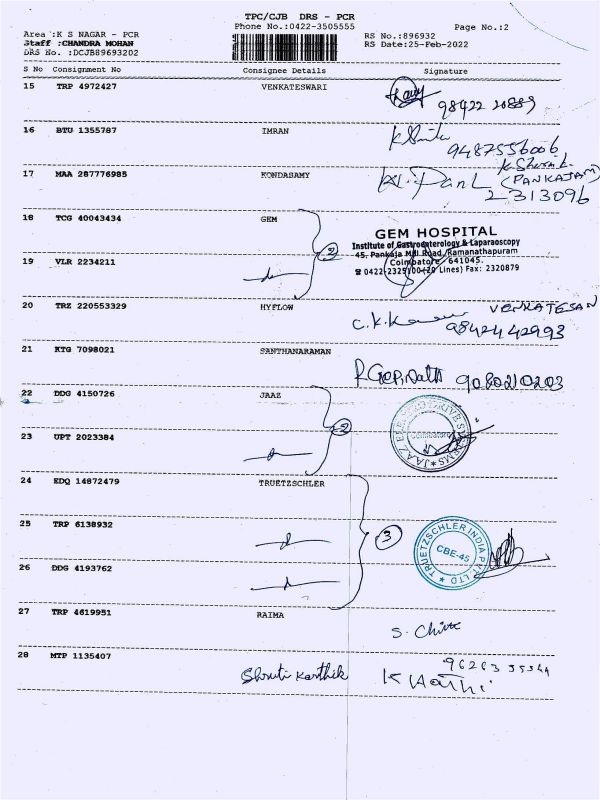 TPC/CJB DRS - PCR
Phone No.:0422-3505555
Page No.:2
Area :K S NAGAR - PCR
Staff :CHANDRA MOHAN
DRS No. :DCJB89693202
RS No.:896932
RS Date:25-Feb-2022
S No Consignment No Consignee Details Signature
15 TRP 4972427 VENKATESWARI
98422 20889
16 BTU 1355787 IMRAN
9487556006
17 MAA 287776985 KONDASAMY
(PANKAJAM)
2313096
18 TCG 40043434 GEM
2
GEM HOSPITAL
Institute of Gastroenterology & Laparaoscopy
45, Pankaja Mill Road, Ramanathapuram
Coimbatore 641045.
☎ 0422-2325100 (20 Lines) Fax: 2320879
19 VLR 2234211
20 TRZ 220553329 HYFLOW
VENKATESAN
9842442993
21 KTG 7098021 SANTHANARAMAN
R.Gopinath 9080210203
22 DDG 4150726 JAAZ
2
JAAZ ELECTRO DRIVE SYSTEMS
Coimbatore
23 UPT 2023384
24 EDQ 14872479 TRUETZSCHLER
25 TRP 6138932
3
TRUETZSCHLER INDIA PVT. LTD
CBE-45
26 DDG 4193762
27 TRP 4619951 RAIMA
28 MTP 1135407
Shruti Karthik